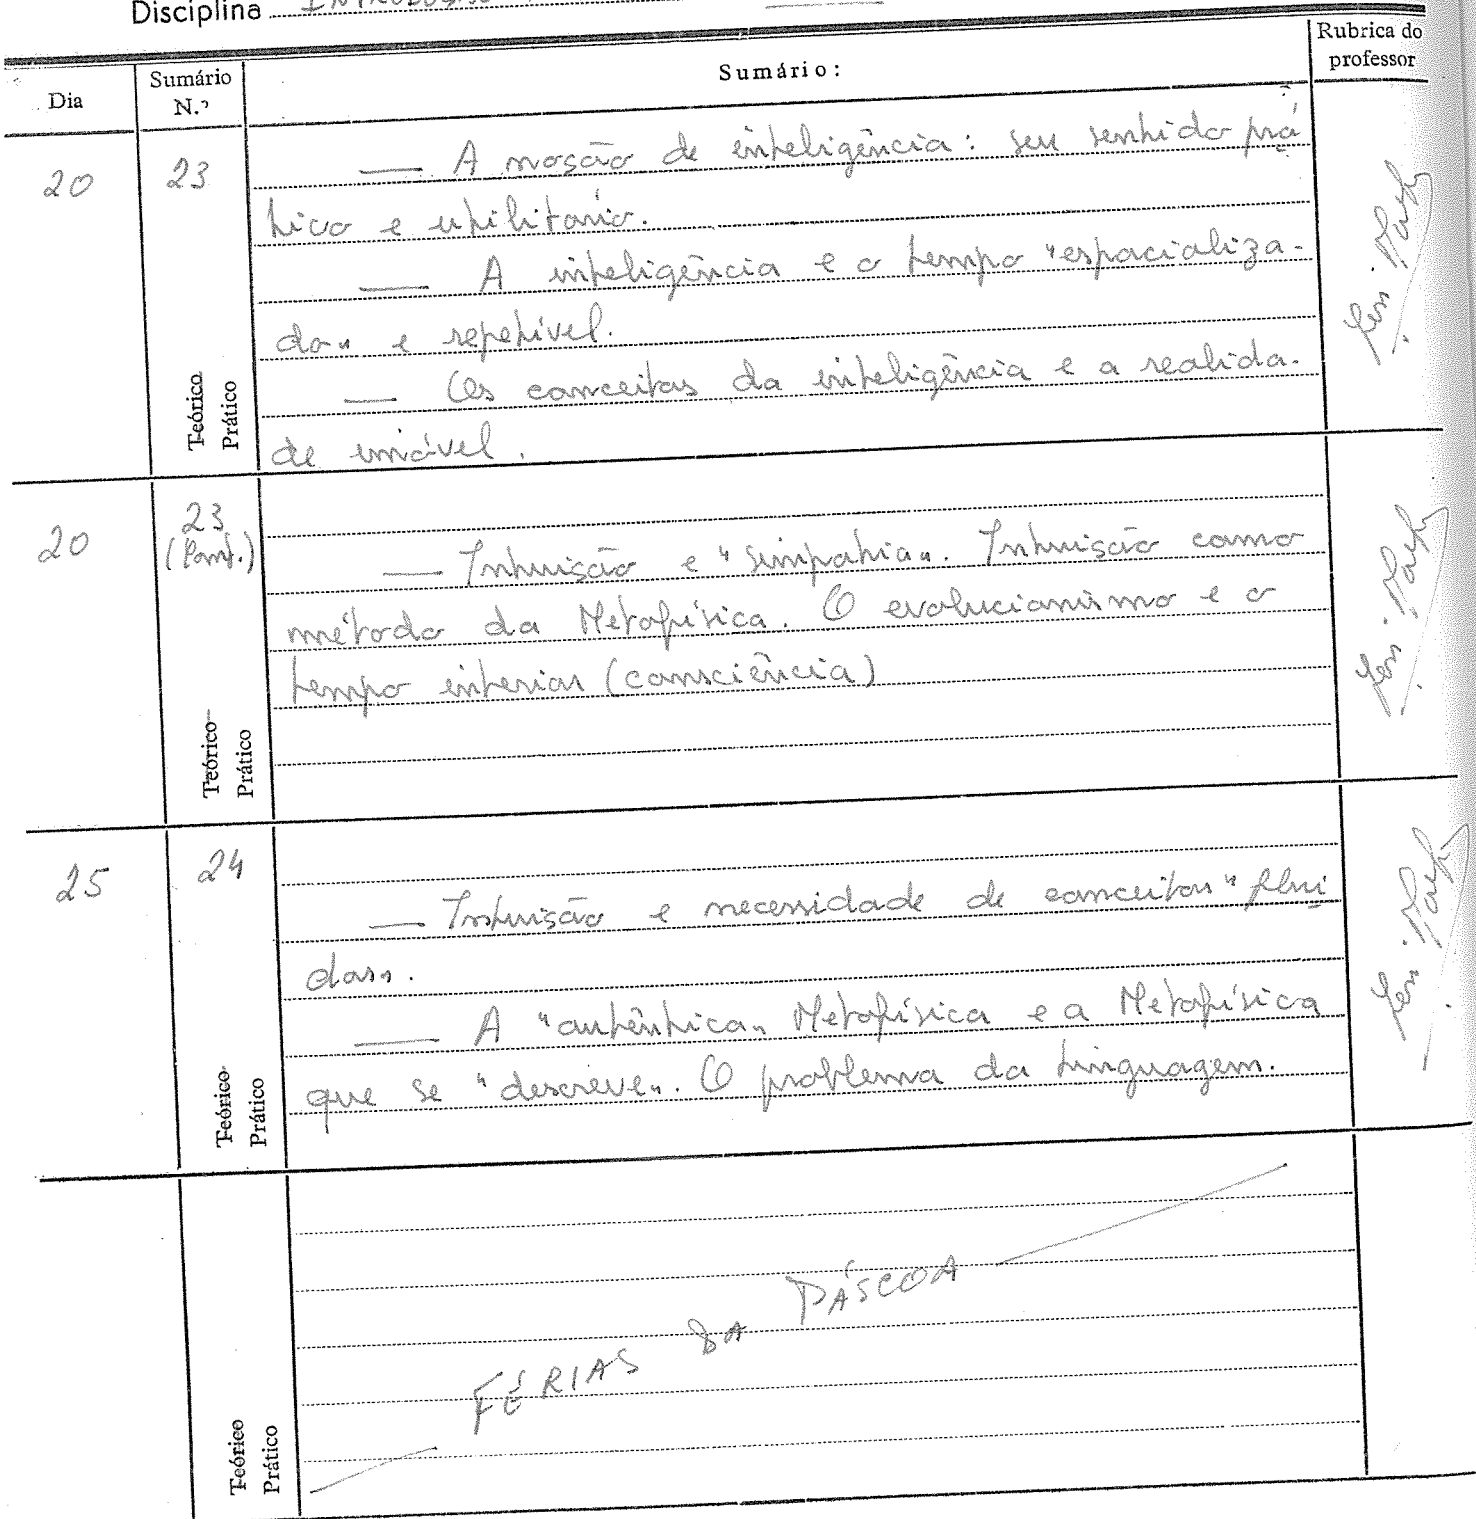 Disciplina
Dia
Sumário N.º
Sumário:
Rubrica do professor
20
23
— A noção de inteligência: seu sentido prá
tico e utilitário.
— A inteligência e o tempo "espacializa-
do" e repetível.
— Os conceitos da inteligência e a realida-
de imóvel.
Teórico
Prático
20
23
(Cont.)
— Intuição e "simpatia". Intuição como
método da Metafísica. O evolucionismo e o
tempo interior (consciência)
Teórico
Prático
25
24
— Intuição e necessidade de conceitos "flui
dos".
— A "autêntica" Metafísica e a Metafísica
que se "descreve". O problema da linguagem.
Teórico
Prático
FÉRIAS DA PÁSCOA
Teórico
Prático